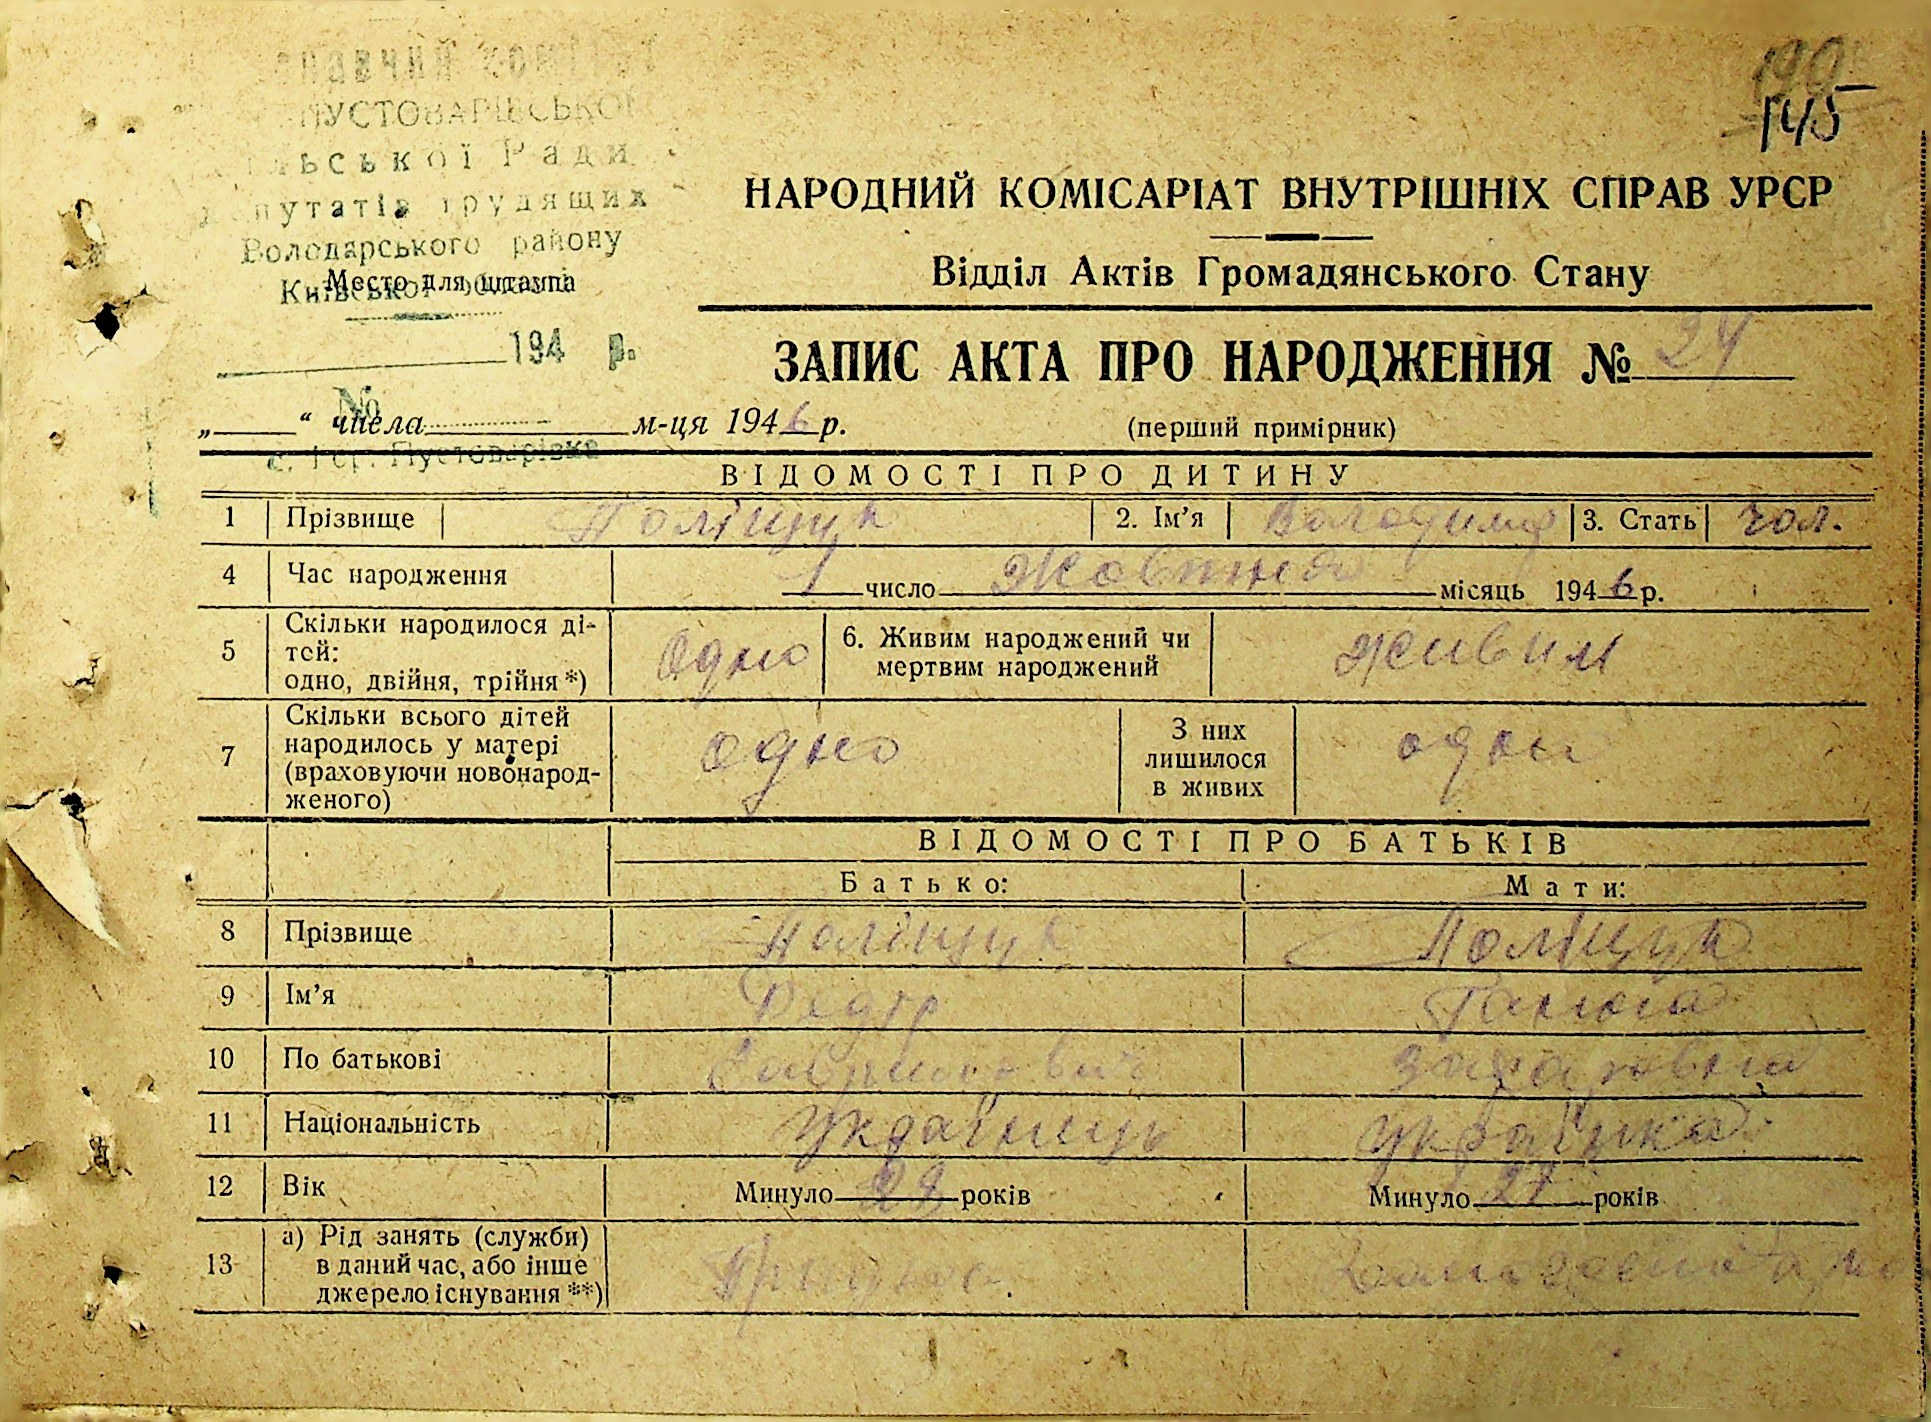 ПУСТОВАРІВСЬКОЇ
Ради
депутатів трудящих
Володарського району
Київської області
Место для штампа
194 р.
№
с. Пустоварівка
145
НАРОДНИЙ КОМІСАРІАТ ВНУТРІШНІХ СПРАВ УРСР
Відділ Актів Громадянського Стану
ЗАПИС АКТА ПРО НАРОДЖЕННЯ № 24
„ “ числа м-ця 1946 р.
(перший примірник)
ВІДОМОСТІ ПРО ДИТИНУ
1 Прізвище Поліщук 2. Ім’я Володимир 3. Стать чол.
4 Час народження 1 число Жовтня місяць 1946 р.
5 Скільки народилося ді-
тей:
одно, двійня, трійня *) Одно
6. Живим народжений чи
мертвим народжений Живим
7 Скільки всього дітей
народилось у матері
(враховуючи новонарод-
женого) одно
З них
лишилося
в живих одно
ВІДОМОСТІ ПРО БАТЬКІВ
Батько: Мати:
8 Прізвище Поліщук Поліщук
9 Ім’я Федір Ганна
10 По батькові Гаврилович Захаровна
11 Національність Українець Українка
12 Вік Минуло років Минуло 27 років
13 а) Рід занять (служби)
в даний час, або інше
джерело існування **)